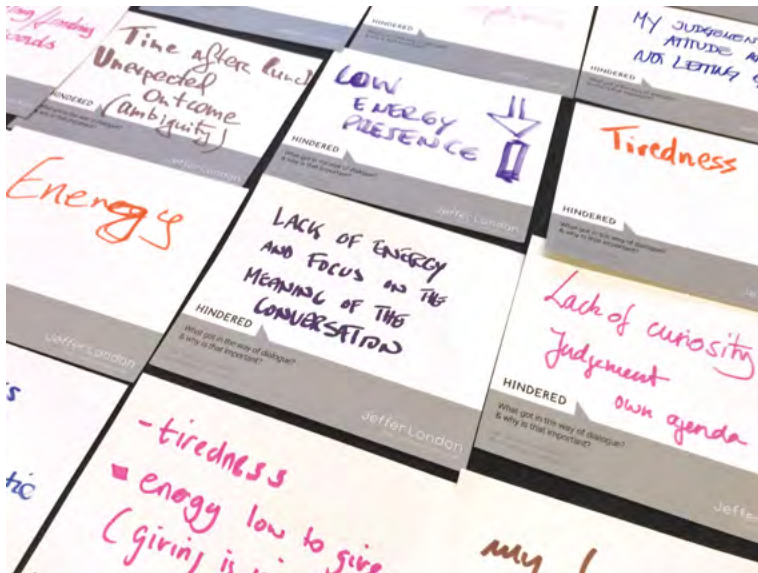 Time after lunch
Unexpected
Outcome
(ambiguity)
HINDERED
LOW
ENERGY
PRESENCE
HINDERED
What got in the way of dialogue?
& why is that important?
Jeffer London
MY JUDGEMENT
ATITUDE
NOT LETTING
HINDERED
Tiredness
HINDERED
What got in the way of dialogue?
& why is that important?
Energy
Jeffer London
LACK OF ENERGY
AND FOCUS ON THE
MEANING OF THE
CONVERSATION
HINDERED
What got in the way of dialogue?
& why is that important?
Jeffer London
Lack of curiosity
Judgement
own agenda
HINDERED
What got in the way of dialogue?
& why is that important?
Jeffer
- tiredness
energy low to give
(giving is
my
HINDERED